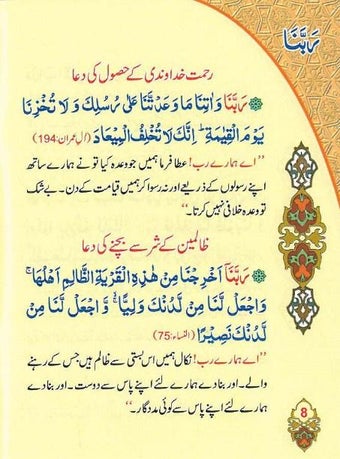 رَبَّنَا
رحمت خداوندی کے حصول کی دعا
رَبَّنَا وَاٰتِنَا مَا وَعَدْتَّنَا عَلٰى رُسُلِكَ وَلَا تُخْزِنَا
يَوْمَ الْقِيٰمَةِ ؕ اِنَّكَ لَا تُخْلِفُ الْمِيْعَادَ (اٰل عمران:194)
”اے ہمارے رب! عطا فرما ہمیں جو وعدہ کیا تو نے ہمارے ساتھ
اپنے رسولوں کے ذریعے اور نہ رسوا کر ہمیں قیامت کے دن۔ بے شک
تو وعدہ خلافی نہیں کرتا۔“
ظالمین کے شر سے بچنے کی دعا
رَبَّنَا اَخْرِجْنَا مِنْ هٰذِهِ الْقَرْيَةِ الظَّالِمِ اَهْلُهَا ۚ
وَاجْعَلْ لَّنَا مِنْ لَّدُنْكَ وَلِيًّا ۙ وَّاجْعَلْ لَّنَا مِنْ
لَّدُنْكَ نَصِيْرًا (النساء:75)
”اے ہمارے رب! نکال ہمیں اس بستی سے ظالم ہیں جس کے رہنے
والے۔ اور بنا دے ہمارے لئے اپنے پاس سے دوست۔ اور بنا دے
ہمارے لئے اپنے پاس سے کوئی مددگار۔“
8